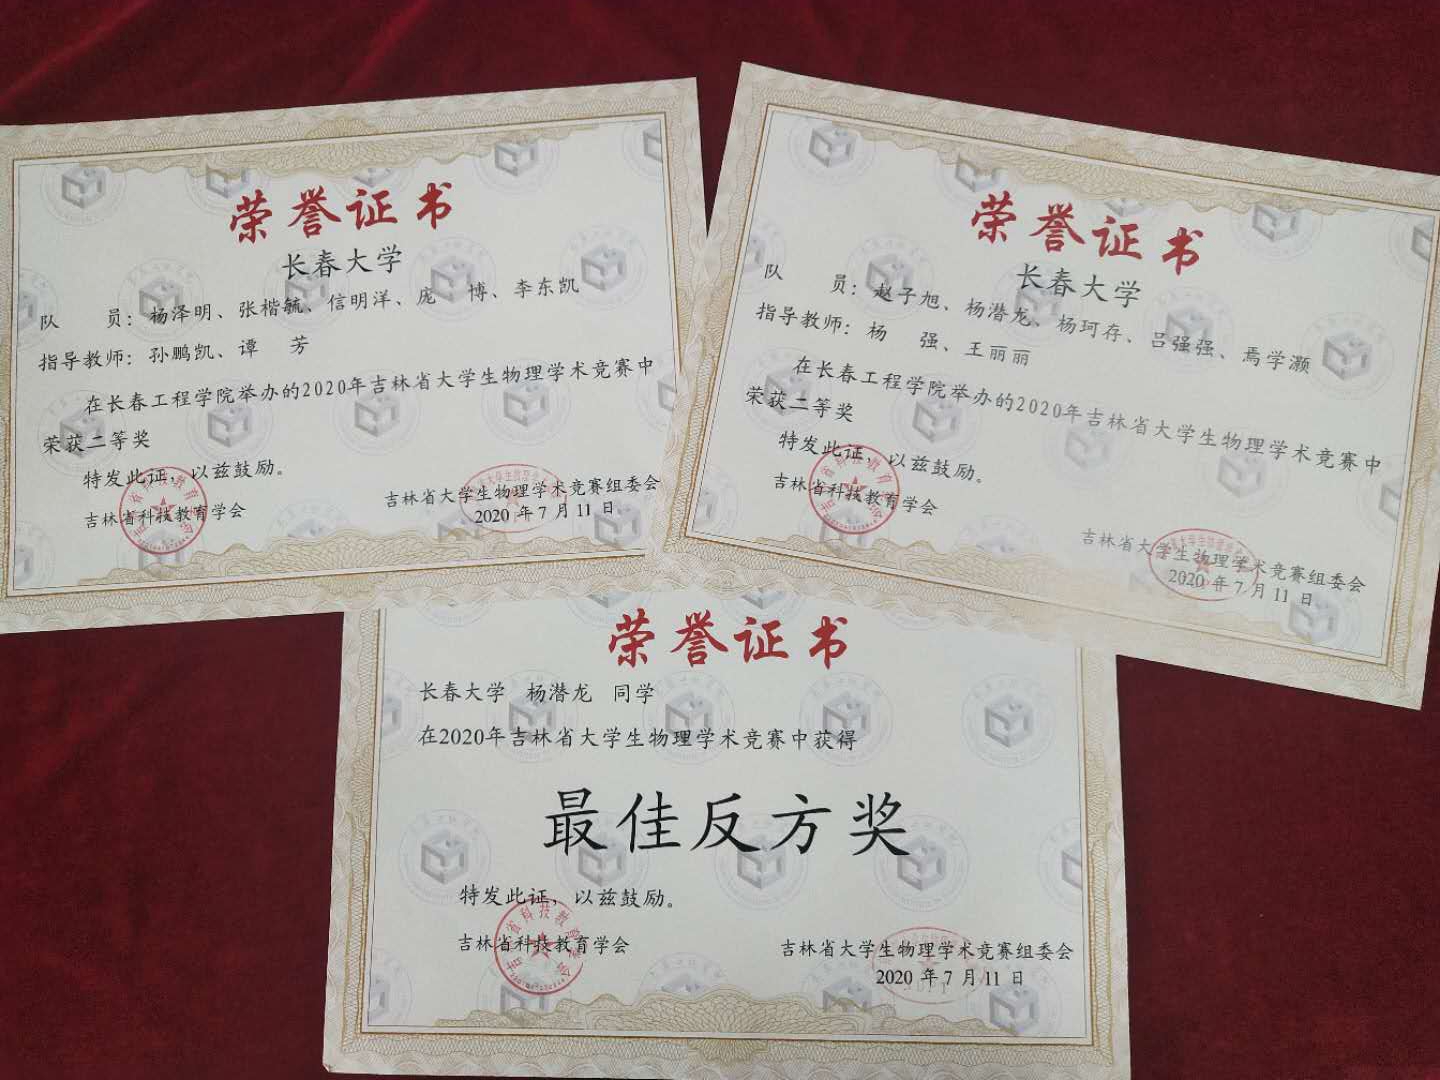 荣誉证书
长春大学
队 员：杨泽明、张楷毓、信明洋、庞 博、李东凯
指导教师：孙鹏凯、谭 芳
在长春工程学院举办的2020年吉林省大学生物理学术竞赛中
荣获二等奖
特发此证，以兹鼓励。
吉林省科技教育学会
吉林省大学生物理学术竞赛组委会
2020 年 7 月 11 日
荣誉证书
长春大学
队 员：赵子旭、杨潜龙、杨珂存、吕强强、焉学灏
指导教师：杨 强、王丽丽
在长春工程学院举办的2020年吉林省大学生物理学术竞赛中
荣获二等奖
特发此证，以兹鼓励。
吉林省科技教育学会
吉林省大学生物理学术竞赛组委会
2020 年 7 月 11 日
荣誉证书
长春大学 杨潜龙 同学
在2020年吉林省大学生物理学术竞赛中获得
最佳反方奖
特发此证，以兹鼓励。
吉林省科技教育学会
吉林省大学生物理学术竞赛组委会
2020 年 7 月 11 日